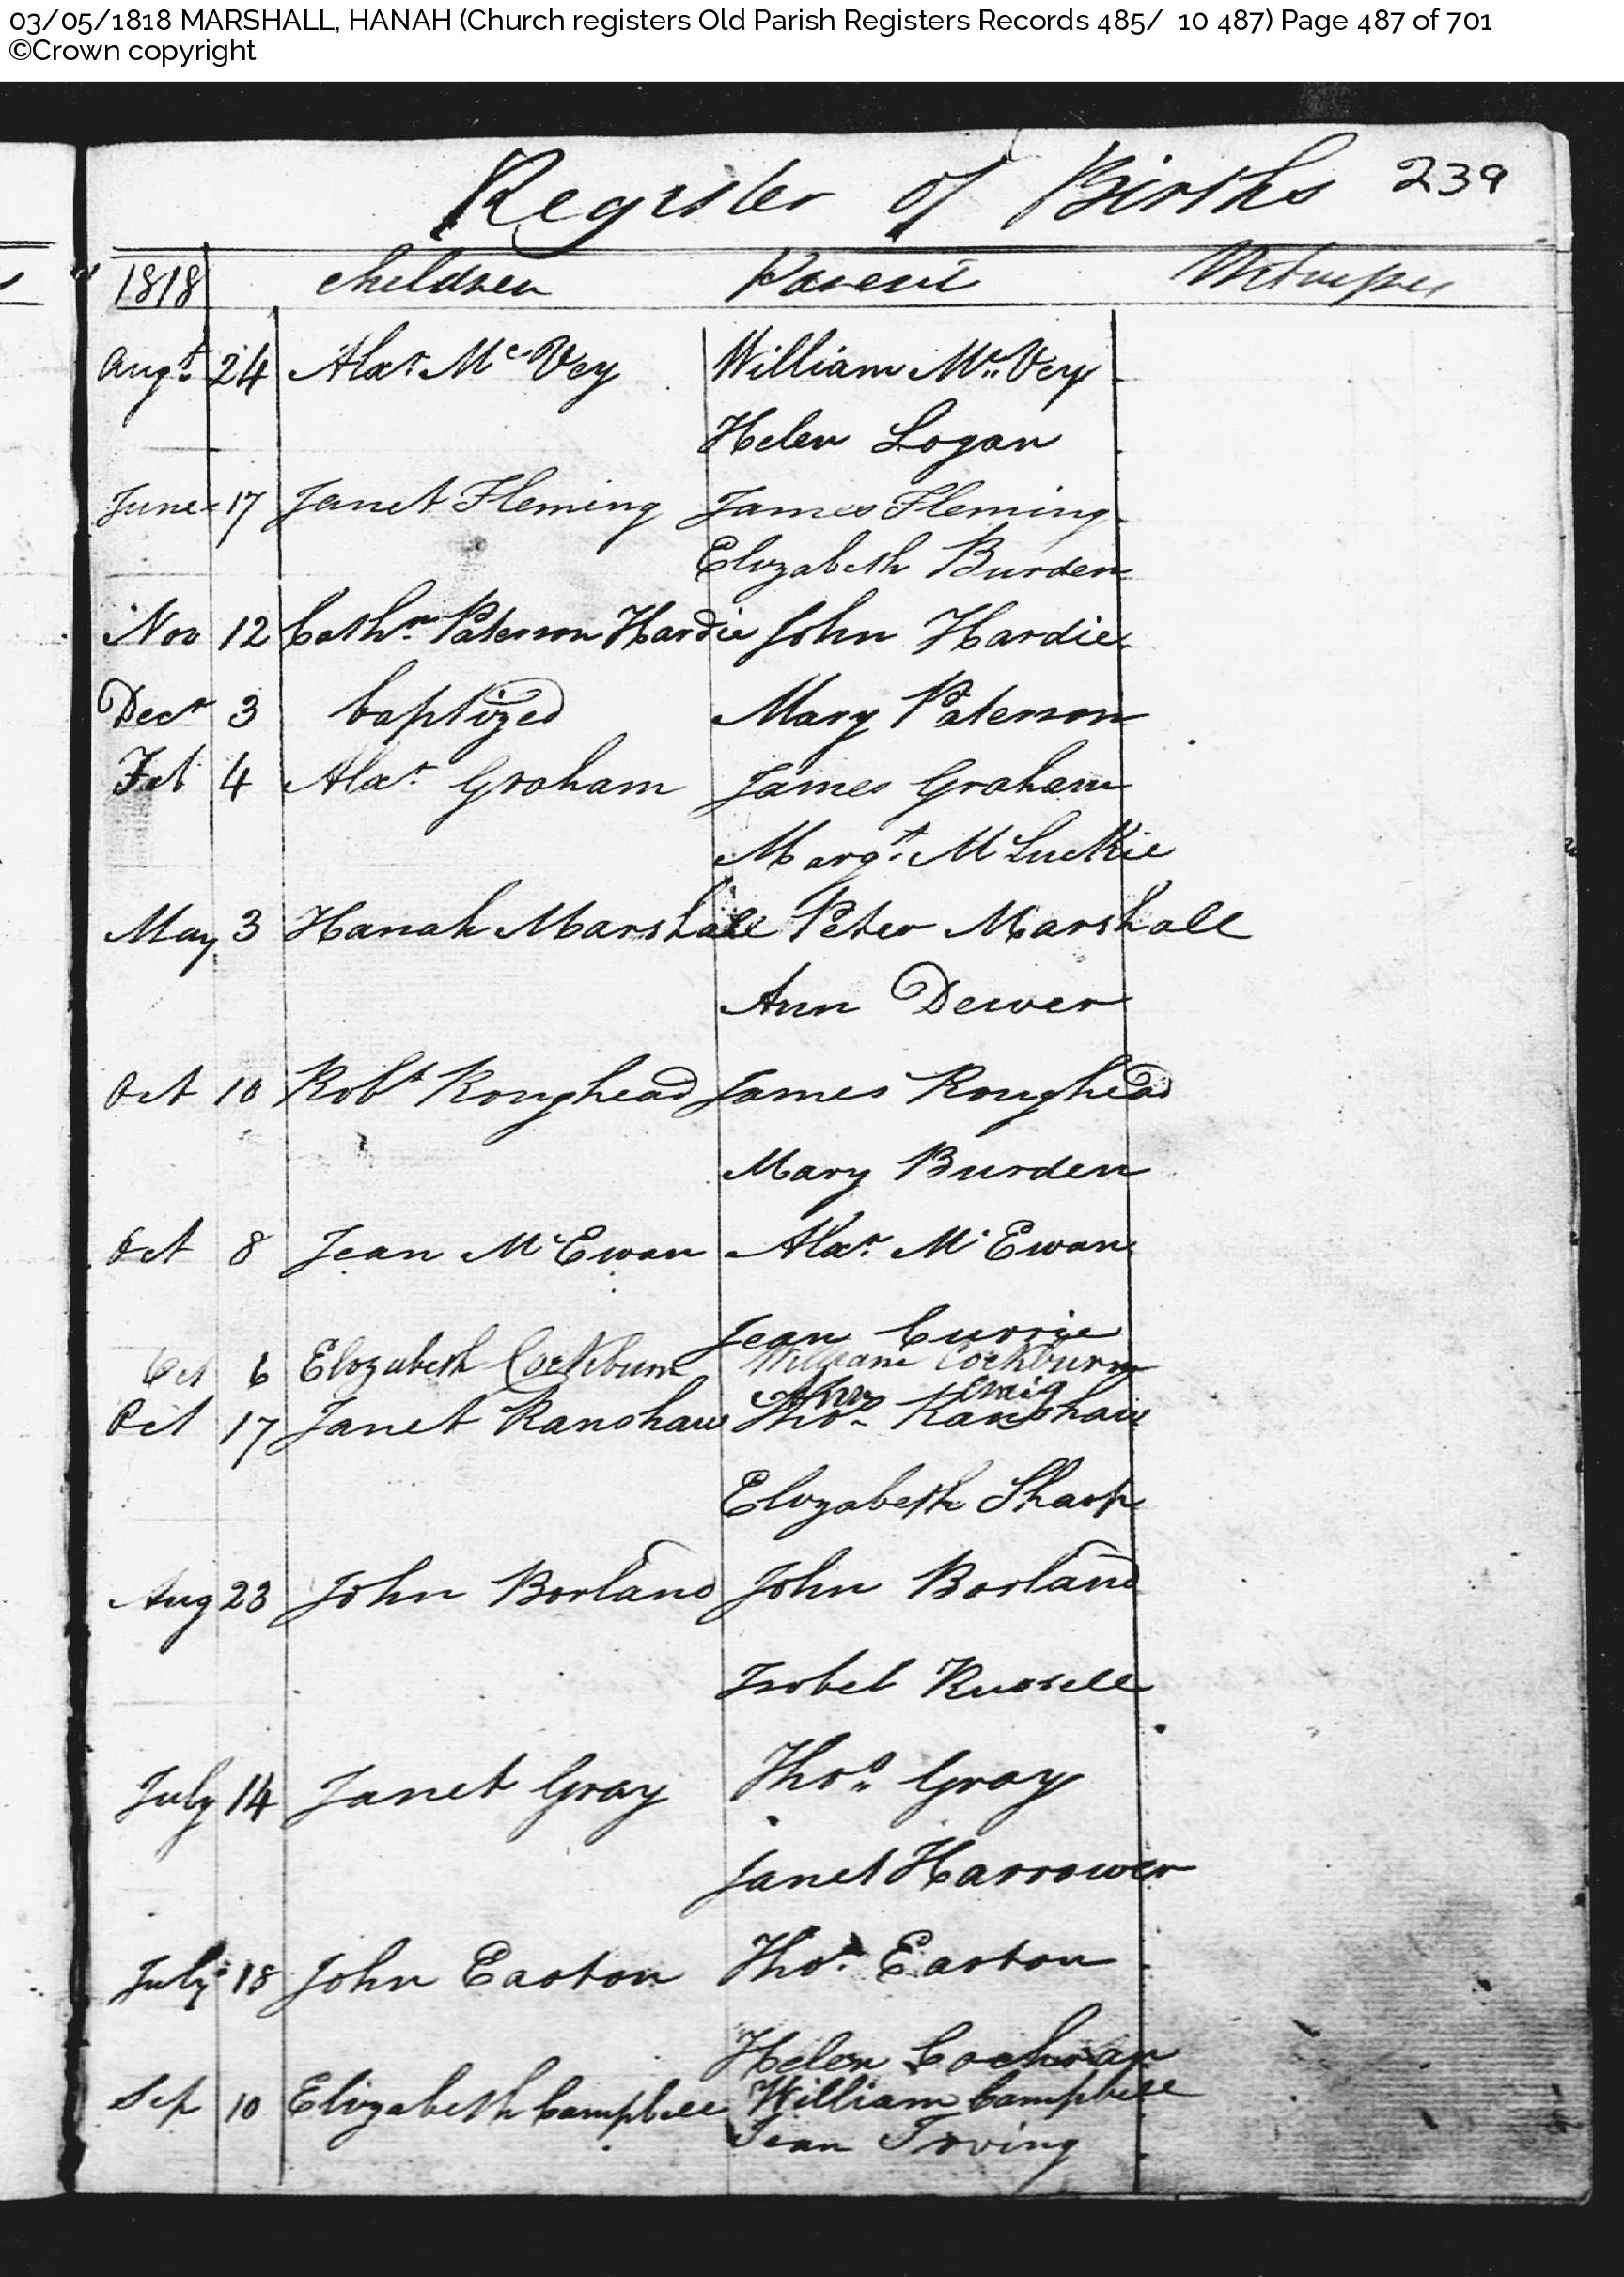 03/05/1818 MARSHALL, HANAH (Church registers Old Parish Registers Records 485/ 10 487) Page 487 of 701
©Crown copyright
Register of Births 239
1818 Children Parent Witnesses
Augt. 24 Alexr. McVey William Mc.Vey
Helen Logan
June 17 Janet Fleming James Fleming
Elizabeth Burden
Nov 12 Cathn. Paterson Hardie John Hardie
Decr 3 baptized Mary Paterson
Feb 4 Alexr. Graham James Graham
Margt. McLuckie
May 3 Hanah Marshall Peter Marshall
Ann Dewer
Oct 10 Robt Roughead James Roughead
Mary Burden
Oct 8 Jean McEwan Alexr. McEwan
Jean Currie
Oct 6 Elizabeth Cockburn William Cockburn
Ann Craig
Oct 17 Janet Ranshaw Thos. Ranshaw
Elizabeth Sharp
Aug 23 John Borland John Borland
Isobel Russell
July 14 Janet Gray Thos. Gray
Janet Harrower
July 18 John Easton Thos. Easton
Helen Cochran
Sep 10 Elizabeth Campbell William Campbell
Jean Irving